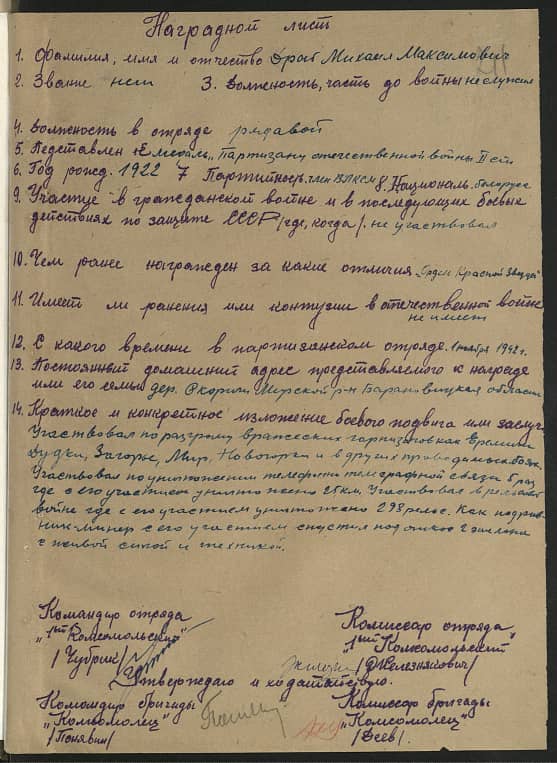 Наградной лист
1. Фамилия, имя и отчество Дроб Михаил Максимович
2. Звание нет 3. Должность, часть до войны не служил
4. Должность в отряде рядовой
5. Педставлен к медаль „Партизану отечественной войны II ст
6. Год рожд. 1922 7 Партийность член ВЛКСМ 8. Националь. белорус
9. Участие в гражданской войне и в последующих боевых
действиях по защите СССР /где, когда/. не участвовал
10. Чем ранее награжден за какие отличия „Орден Красной Звезды"
11. Имеет ли ранения или контузии в отечественной войне
не имеет
12. С какого времени в партизанском отряде. 1942 г.
13. Постоянный домашний адрес представляемого к награде
или его семьи дер. Скоричи Мирской р-н Барановицкая область
14. Краткое и конкретное изложение боевого подвига или заслуг
Участвовал по разгрому вражеских гарнизонов как Еремичи
Дудки, Загорье, Мир, Новогорки и в других проводимых боях.
Участвовал по уничтожению телефоно телеграфной связи 5 раз
где с его участием уничтожено 25 км. Участвовал в рельсовой
войне где с его участием уничтожено 298 рельс. Как подрыв-
ник-минер с его участием спустил под откос 2 эшелона
с живой силой и техникой.
Командир отряда Комиссар отряда
„1ый Комсомольский" „1ый Комсомольский"
/Чубрик/ /Железнякович/
Утверждаю и ходатайствую.
Командир бригады Комиссар бригады
„Комсомолец" „Комсомолец"
/Понявин/ /Есев/.